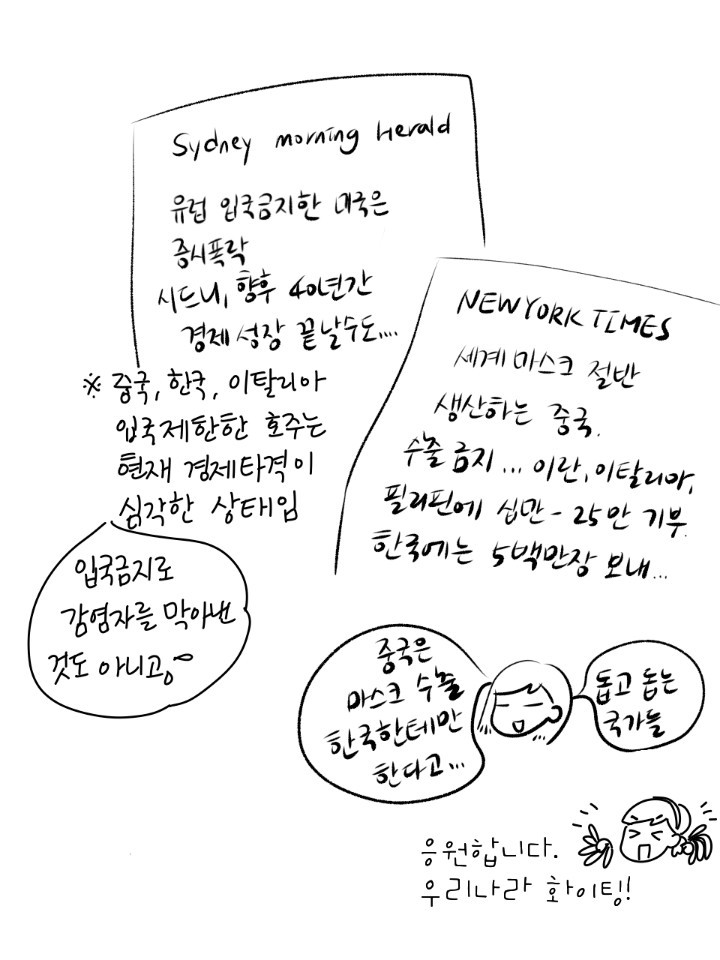 Sydney morning Herald
유럽 입국금지한 미국은
증시폭락
시드니, 향후 40년간
경제 성장 끝날수도....
※ 중국, 한국, 이탈리아
입국제한한 호주는
현재 경제타격이
심각한 상태임
입국금지로
감염자를 막아낸
것도 아니고。
NEWYORK TIMES
세계 마스크 절반
생산하는 중국.
수출 금지... 이란, 이탈리아,
필리핀에 십만 - 25만 기부.
한국에는 5백만장 보내...
중국은
마스크 수출
한국한테만
한다고...
돕고 돕는
국가들
응원합니다.
우리나라 화이팅!